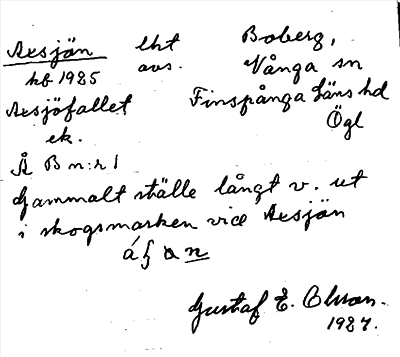 Axsjön lht Boberg,
hf 1925 avs. Vånga sn
Axsjöfallet Finspånga läns hd
ek. Ögl
Å B n:r 1
Gammalt ställe långt v. ut
i skogsmarken vid Axsjön
Gustaf E. Olsson.
1927.